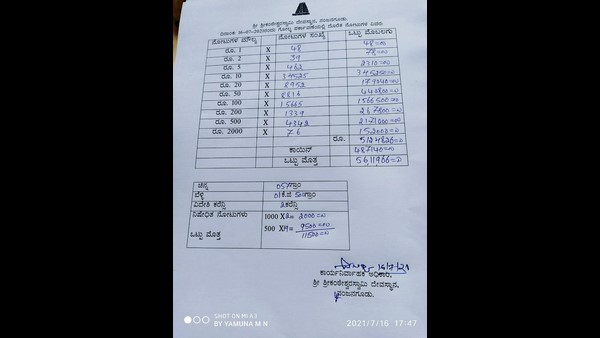 ಶ್ರೀ ಶ್ರೀಕಂಠೇಶ್ವರಸ್ವಾಮಿ ದೇವಸ್ಥಾನ, ನಂಜನಗೂಡು.
ದಿನಾಂಕ: 16-07-2021ರಂದು ಗೋಲ್ಕ ಪರ್ಕಾವಣೆಯಲ್ಲಿ ದೊರೆತ ನೋಟುಗಳ ವಿವರ
ನೋಟುಗಳ ಮೌಲ್ಯ ನೋಟುಗಳ ಸಂಖ್ಯೆ ಒಟ್ಟು ಮೊಬಲಗು
ರೂ. 1 X 48 48=00
ರೂ. 2 X 39 78=00
ರೂ. 5 X 462 2310=00
ರೂ. 10 X 34525 345250=00
ರೂ. 20 X 8952 179040=00
ರೂ. 50 X 8816 440800=00
ರೂ. 100 X 15665 1566500=00
ರೂ. 200 X 1339 267800=00
ರೂ. 500 X 4342 2171000=00
ರೂ. 2000 X 76 152000=00
ರೂ. 5124826=00
ಕಾಯಿನ್ 487140=00
ಒಟ್ಟು ಮೊತ್ತ 5611966=00
ಚಿನ್ನ ಗ್ರಾಂ
ಬೆಳ್ಳಿ 01 ಕೆ.ಜಿ 500 ಗ್ರಾಂ
ವಿದೇಶಿ ಕರೆನ್ಸಿ 2 ಕರೆನ್ಸಿ
ನಿಷೇಧಿತ ನೋಟುಗಳು 1000 X 2= 2000=00
500 X 19= 9500=00
ಒಟ್ಟು ಮೊತ್ತ 11500=00
16/7/21
ಕಾರ್ಯನಿರ್ವಾಹಕ ಅಧಿಕಾರಿ,
ಶ್ರೀ ಶ್ರೀಕಂಠೇಶ್ವರಸ್ವಾಮಿ ದೇವಸ್ಥಾನ,
ನಂಜನಗೂಡು.
SHOT ON MI A3
BY YAMUNA M N
2021/7/16 17:47